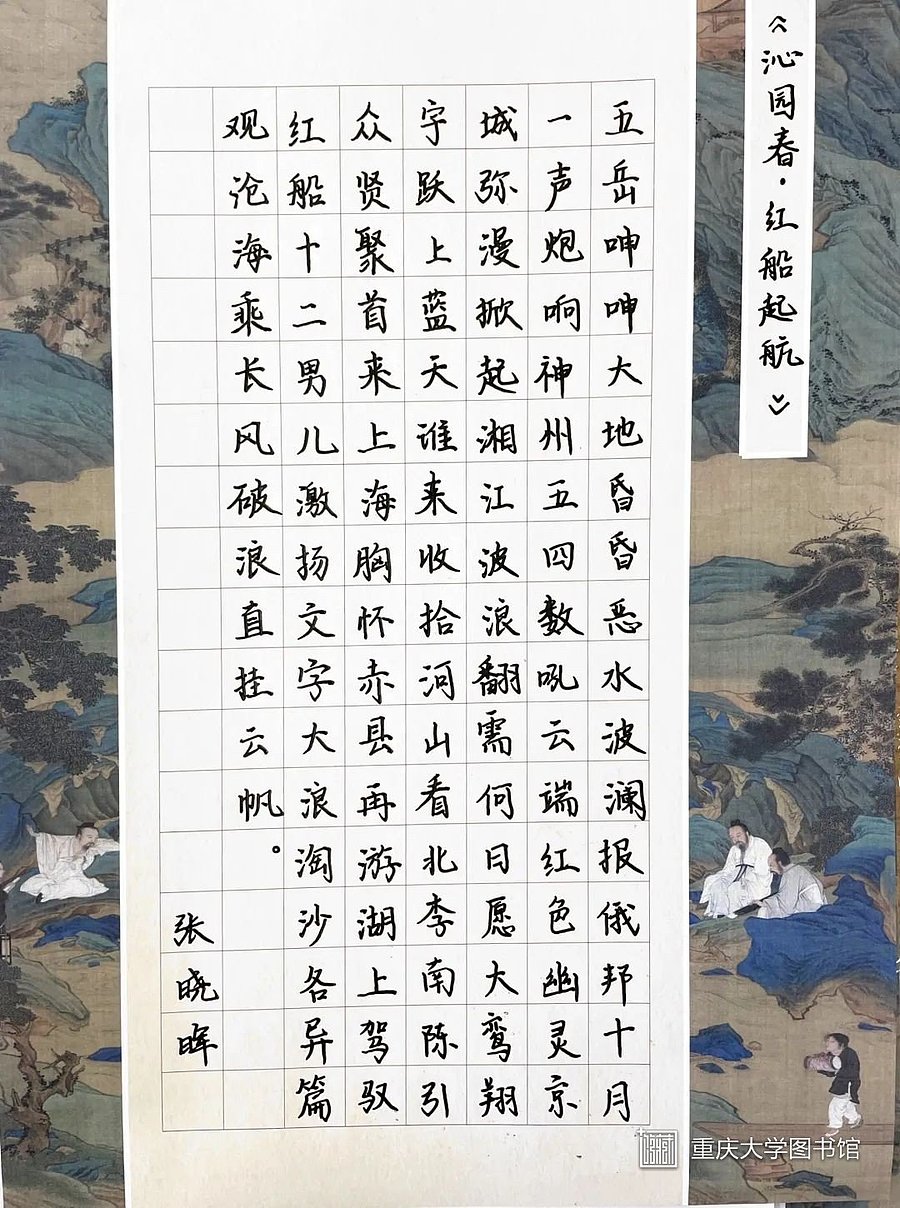 《沁园春·红船起航》
五岳呻呻大地昏昏恶水波澜报俄邦十月
一声炮响神州五四数吼云端红色幽灵京
城弥漫掀起湘江波浪翻需何日愿大鸾翔
宇跃上蓝天谁来收拾河山看北李南陈引
众贤聚首来上海胸怀赤县再游湖上驾驭
红船十二男儿激扬文字大浪淘沙各异篇
观沧海乘长风破浪直挂云帆。
张晓晖
重庆大学图书馆